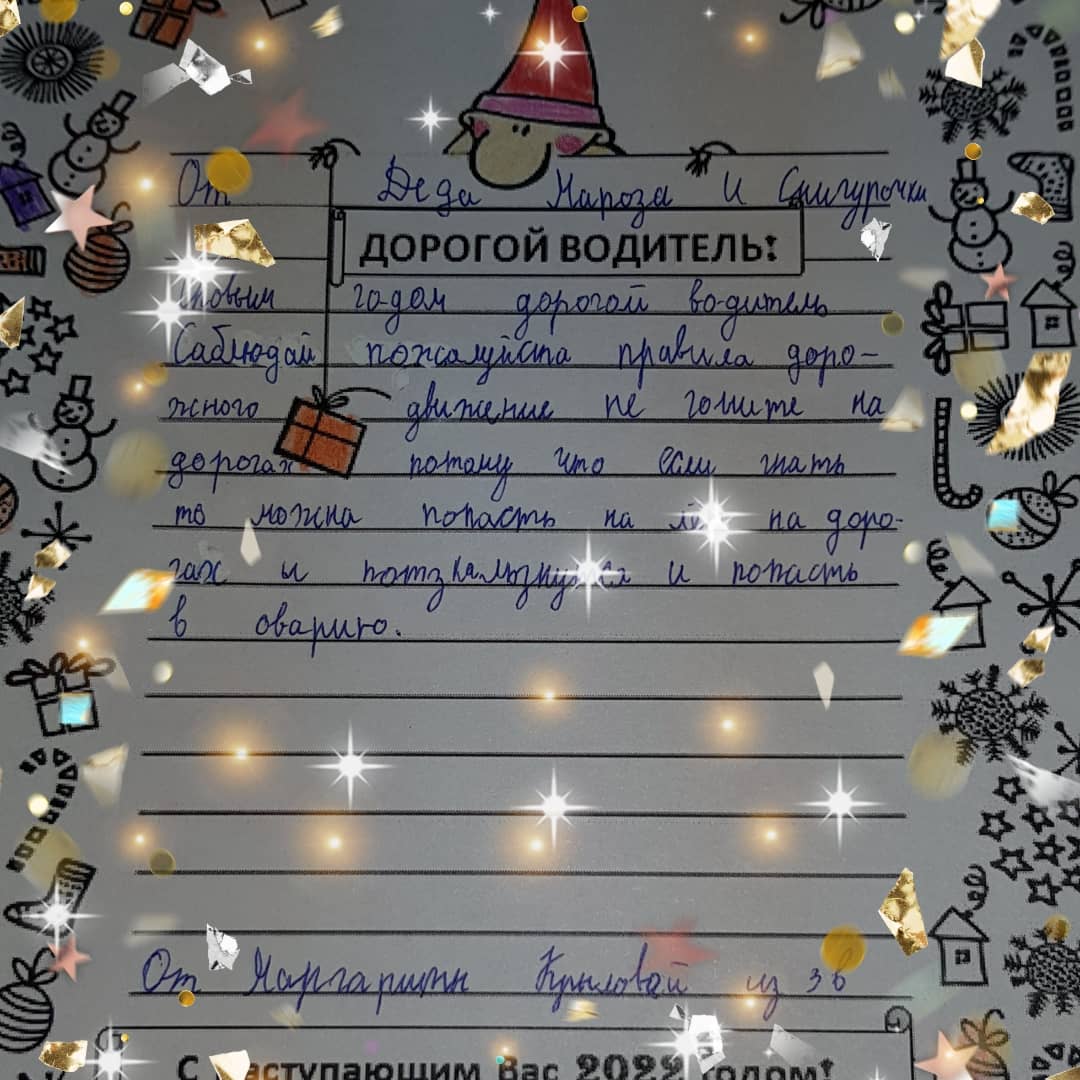 От Деда Мароза и Снигурочки
ДОРОГОЙ ВОДИТЕЛЬ!
новым годом дорогой водитель
Саблюдай пожалуйста правила доро-
жного движение не гоните на
дорогах потому что если гнать
то можна попасть на на доро-
гах и и попасть
в оварию.
От Маргариты Крыловай из 3в
С наступающим Вас 2022 годом!